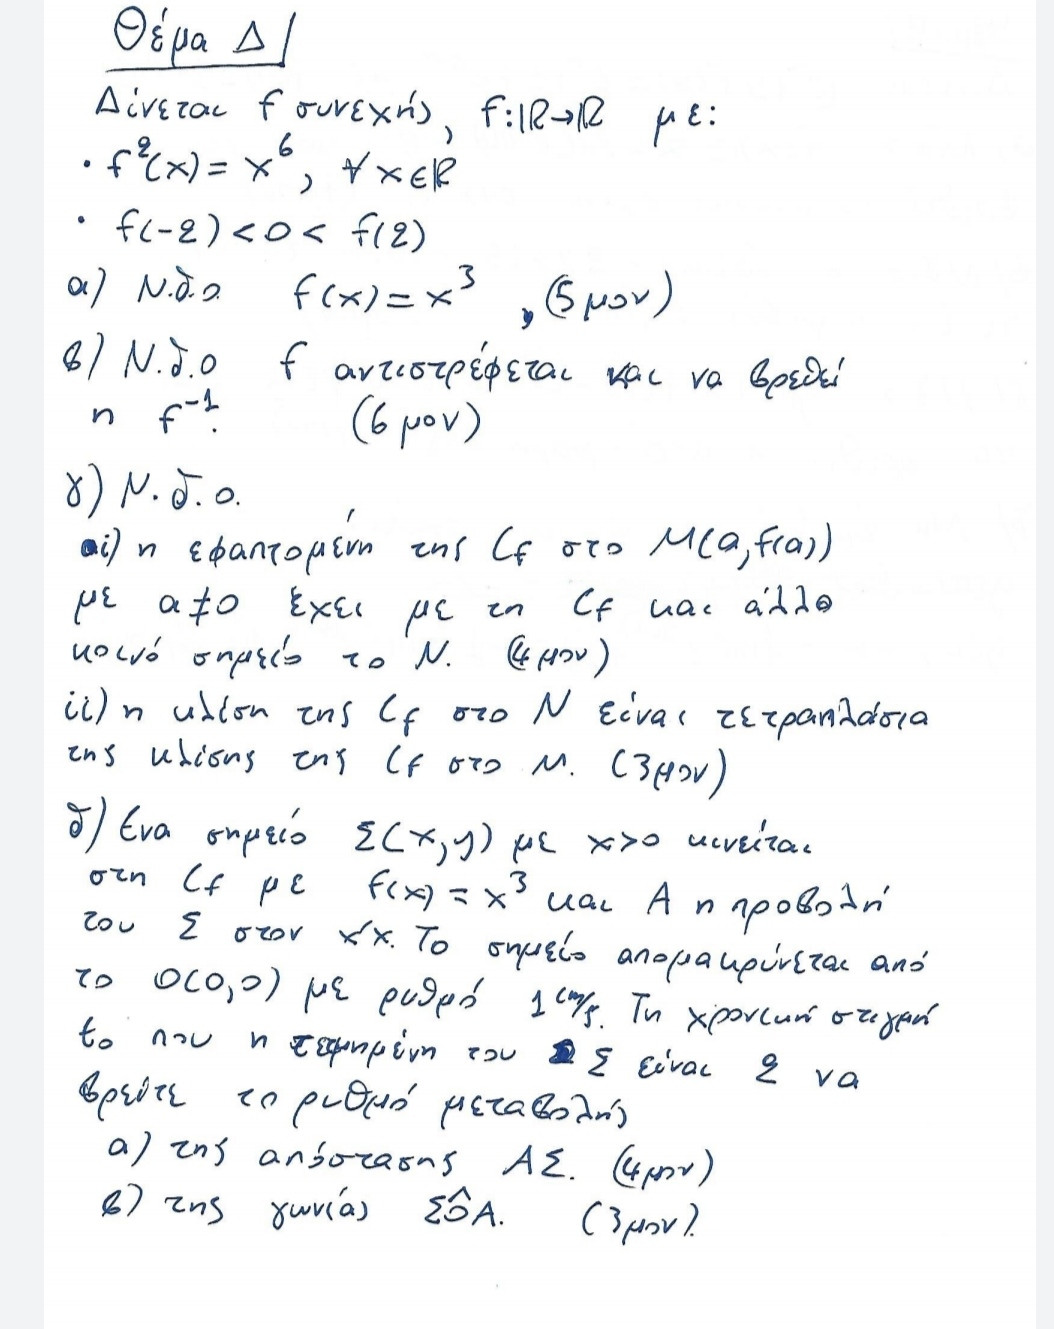 Θέμα Δ
Δίνεται f συνεχής, f:ℝ→ℝ με:
• f²(x) = x⁶, ∀x∈ℝ
• f(-2) < 0 < f(2)
α) Ν.δ.ο. f(x) = x³, (5 μον)
β) Ν.δ.ο f αντιστρέφεται και να βρεθεί
η f⁻¹. (6 μον)
γ) Ν.δ.ο.
i) η εφαπτομένη της Cf στο M(a,f(a))
με a≠0 έχει με τη Cf και άλλο
κοινό σημείο το N. (4 μον)
ii) η κλίση της Cf στο N είναι τετραπλάσια
της κλίσης της Cf στο M. (3 μον)
δ) Ένα σημείο Σ(x,y) με x>0 κινείται
στη Cf με f(x) = x³ και Α η προβολή
του Σ στον x'x. Το σημείο απομακρύνεται από
το O(0,0) με ρυθμό 1 cm/s. Τη χρονική στιγμή
t₀ που η τετμημένη του Σ είναι 2 να
βρείτε το ρυθμό μεταβολής
α) της απόστασης ΑΣ. (4 μον)
β) της γωνίας ΣÔΑ. (3 μον).